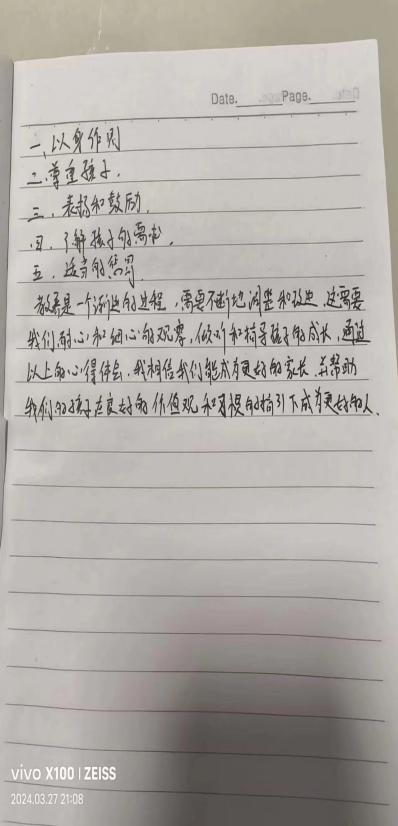 Date. Page.
一、以身作则
二、尊重孩子.
三、表扬和鼓励.
四、了解孩子的需求.
五、适当的惩罚
教育是一个渐进的过程,需要不断地调整和改进,这需要
我们耐心和细心的观察,倾听和指导孩子的成长,通过
以上的心得体会,我相信我们能成为更好的家长,并帮助
我们的孩子在良好的价值观和习惯的指引下成为更好的人.
vivo X100 | ZEISS
2024.03.27 21:08